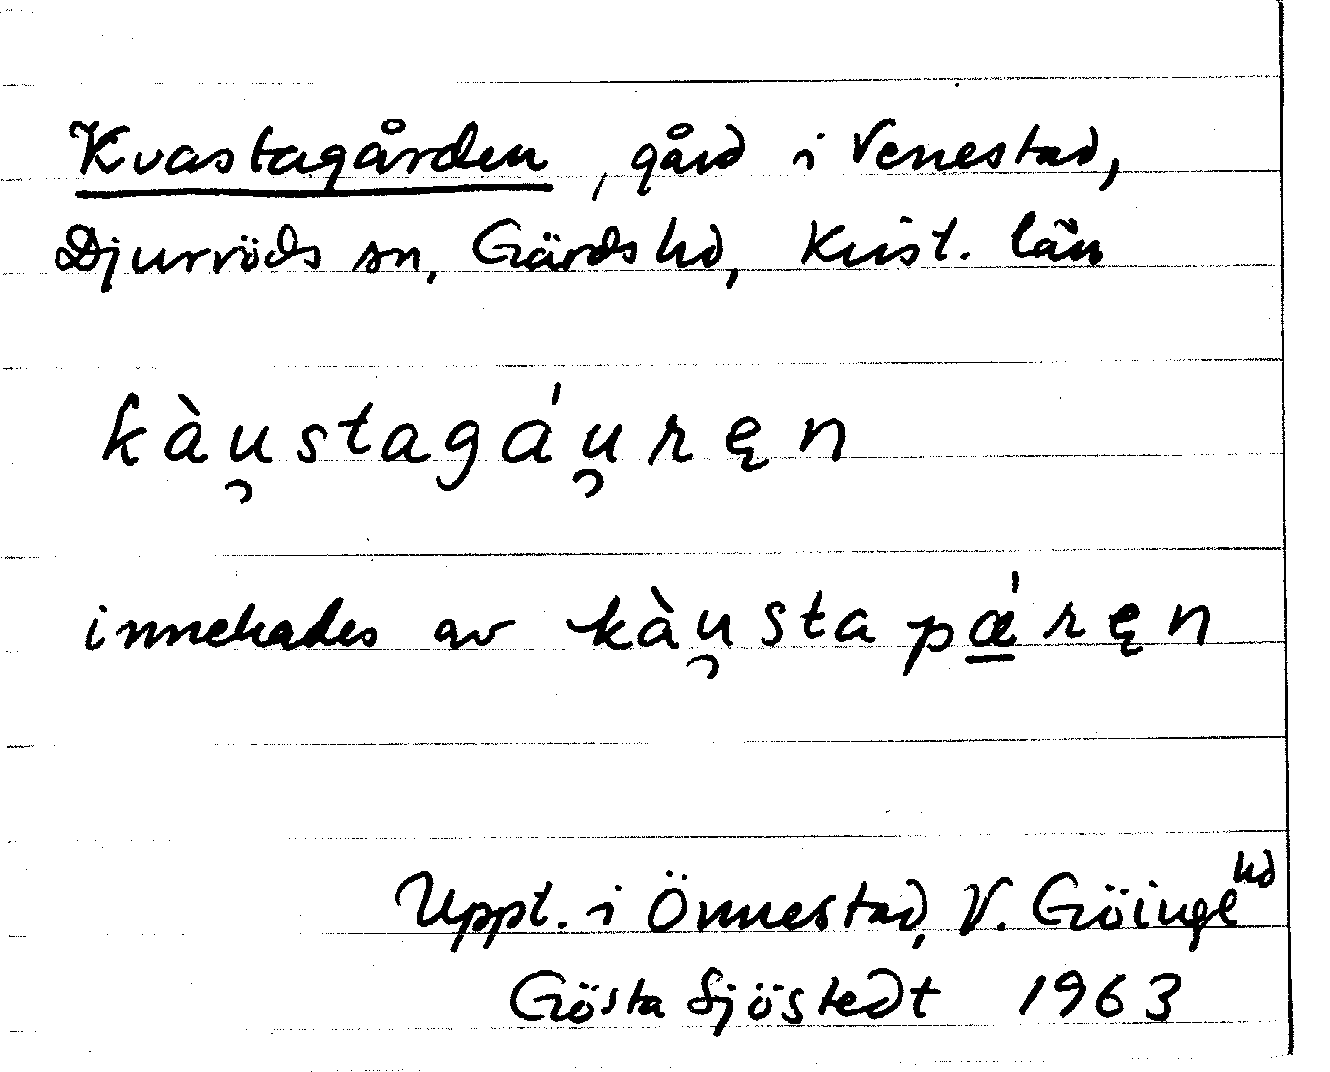 Kvastagården, gård i Venestad,
Djurröds sn, Gärds hd, Krist. län
kàu̯stagá'u̯ręn
innehades av kàu̯stapǽ̱'ręn
Uppt. i Önnestad, V. Göinge hd
Gösta Sjöstedt 1963